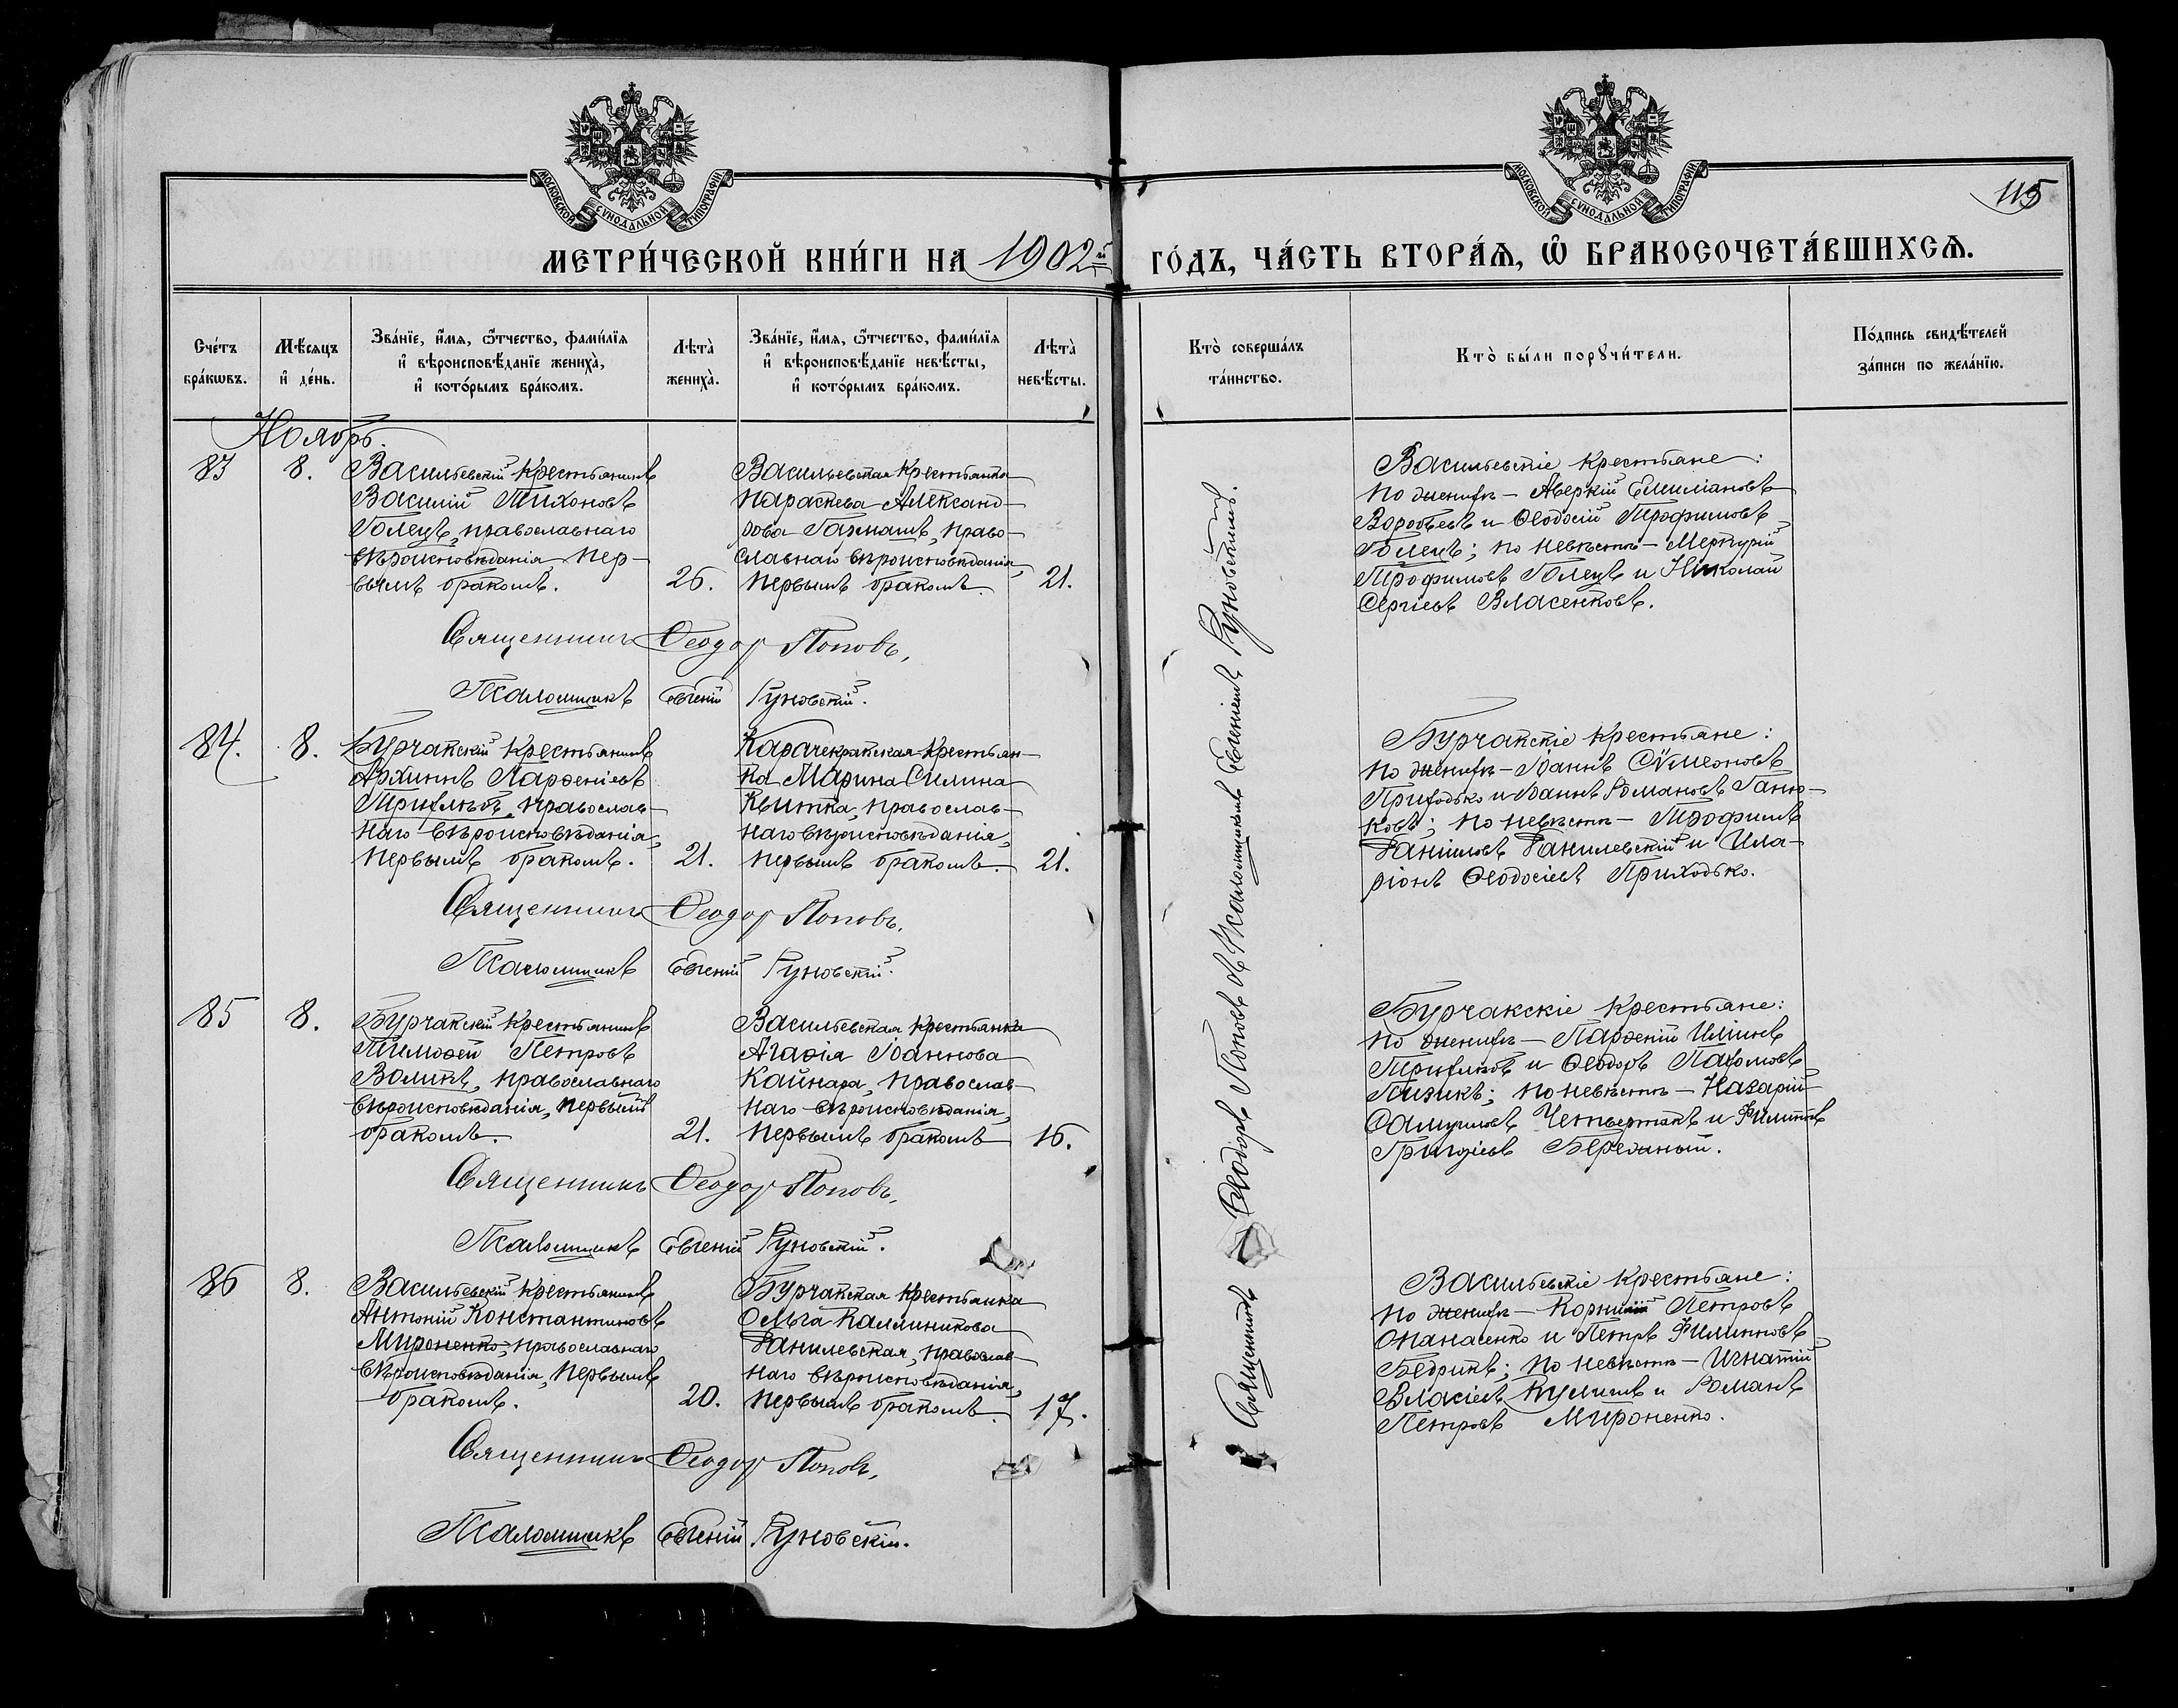 МОСКОВСКОЙ СѴНОДАЛЬНОЙ ТИПОГРАФІИ
МОСКОВСКОЙ СѴНОДАЛЬНОЙ ТИПОГРАФІИ
115
МЕТРИ́ЧЕСКОЙ КНИ́ГИ НА 1902й ГО́ДЪ, ЧА́СТЬ ВТОРА́Ѧ, Ѽ БРАКОСОЧЕТА́ВШИХСѦ.
Сче́тъ
бра́кѡвъ.
Мѣ́сяцъ
и҆ де́нь.
Зва́нїе, и҆́мя, ѻ҆́тчество, фами́лїя
и҆ вѣроисповѣ́данїе жениха̀,
и҆ кото́рымъ бра́комъ.
Лѣта̀
жениха̀.
Зва́нїе, и҆́мя, ѻ҆́тчество, фами́лїя
и҆ вѣроисповѣ́данїе невѣ́сты,
и҆ кото́рымъ бра́комъ.
Лѣта̀
невѣ́сты.
Кто̀ соверша́лъ
та́инство.
Кто̀ бы́ли порꙋчи́тели.
По́дпись свидѣ́телей
за́писи по жела́нїю.
Ноябрь.
83
8.
Васильевскій крестьянинъ
Василій Тихоновъ
Голецъ, православнаго
вѣроисповѣданія, пер-
вымъ бракомъ.
26.
Васильевская крестьянка
Параскева Александ-
рова Гармашъ, право-
славнаго вѣроисповѣданія,
первымъ бракомъ.
21.
Васильевскіе крестьяне:
по женихѣ – Аверкій Емиліановъ
Воробьевъ и Ѳеодосій Трофимовъ
Голецъ; по невѣстѣ – Меркурій
Трофимовъ Голецъ и Николай
Сергіевъ Власенковъ.
Священникъ Ѳеодоръ Поповъ,
Псаломщикъ Евгеній Руновскій.
84.
8.
Бурчакскій крестьянинъ
Архиппъ Парѳеніевъ
православ-
наго вѣроисповѣданія,
первымъ бракомъ.
21.
Карачекракская крестьян-
ка Марина Силина
Квитка, православ-
наго вѣроисповѣданія,
первымъ бракомъ.
21.
Бурчакскіе крестьяне:
по женихѣ – Іоаннъ Сѵмеоновъ
Приходько и Іоаннъ Романовъ Ганю-
ковъ; по невѣстѣ – Трофимъ
Даніиловъ Данилевскій и Ила-
ріонъ Ѳеодосіевъ Приходько.
Священникъ Ѳеодоръ Поповъ,
Псаломщикъ Евгеній Руновскій.
85
8.
Бурчакскій крестьянинъ
Тимоѳей Петровъ
Воликъ, православнаго
вѣроисповѣданія, первымъ
бракомъ.
21.
Васильевская крестьянка
Агаѳія Іоаннова
Кайнара, православ-
наго вѣроисповѣданія,
первымъ бракомъ
16.
Бурчакскіе крестьяне:
по женихѣ – Парѳеній Иліинъ
и Ѳеодоръ Пахомовъ
Пизикъ; по невѣстѣ – Назарій
Самуиловъ Четвертакъ и Филиппъ
Григоріевъ Бережный.
Священникъ Ѳеодоръ Поповъ,
Псаломщикъ Евгеній Руновскій.
86
8.
Васильевскій крестьянинъ
Антоній Константиновъ
Мироненко, православнаго
вѣроисповѣданія, первымъ
бракомъ.
20.
Бурчакская крестьянка
Ольга Каллиникова
Данилевская, православ-
наго вѣроисповѣданія,
первымъ бракомъ.
17.
Васильевскіе крестьяне:
по женихѣ – Корнилій Петровъ
Опанасенко и Петръ Филипповъ
Бедрикъ; по невѣстѣ – Игнатій
Власіевъ и Романъ
Петровъ Мироненко.
Священникъ Ѳеодоръ Поповъ,
Псаломщикъ Евгеній Руновскій.
Священникъ Ѳеодоръ Поповъ съ Псаломщикомъ Евгеніемъ Руновскимъ.